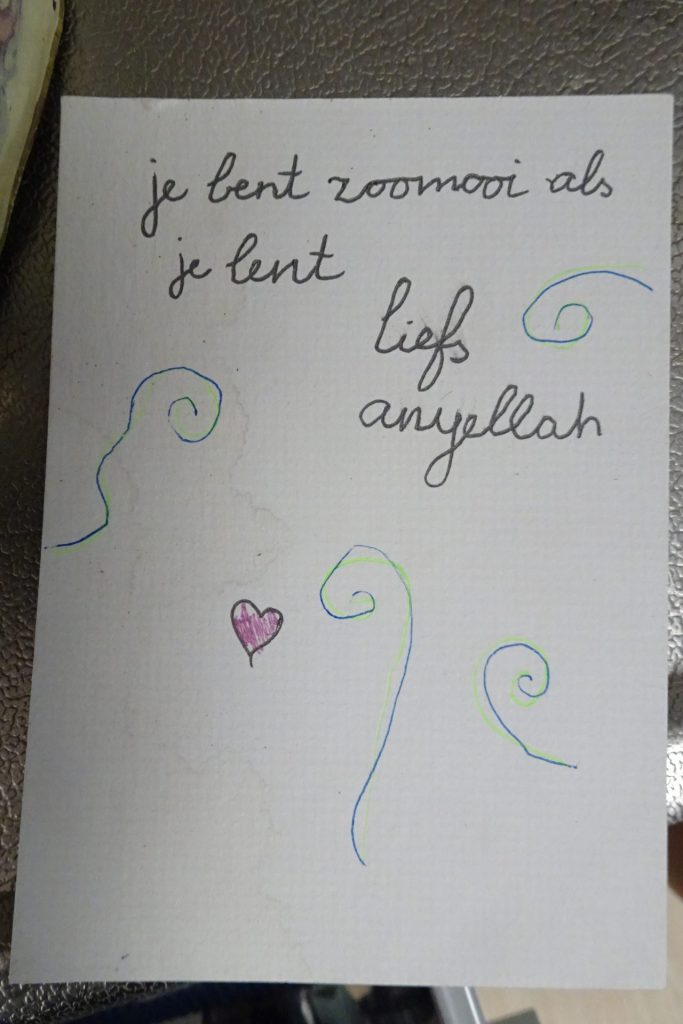 je bent zoomooi als
je bent
liefs
anyellah